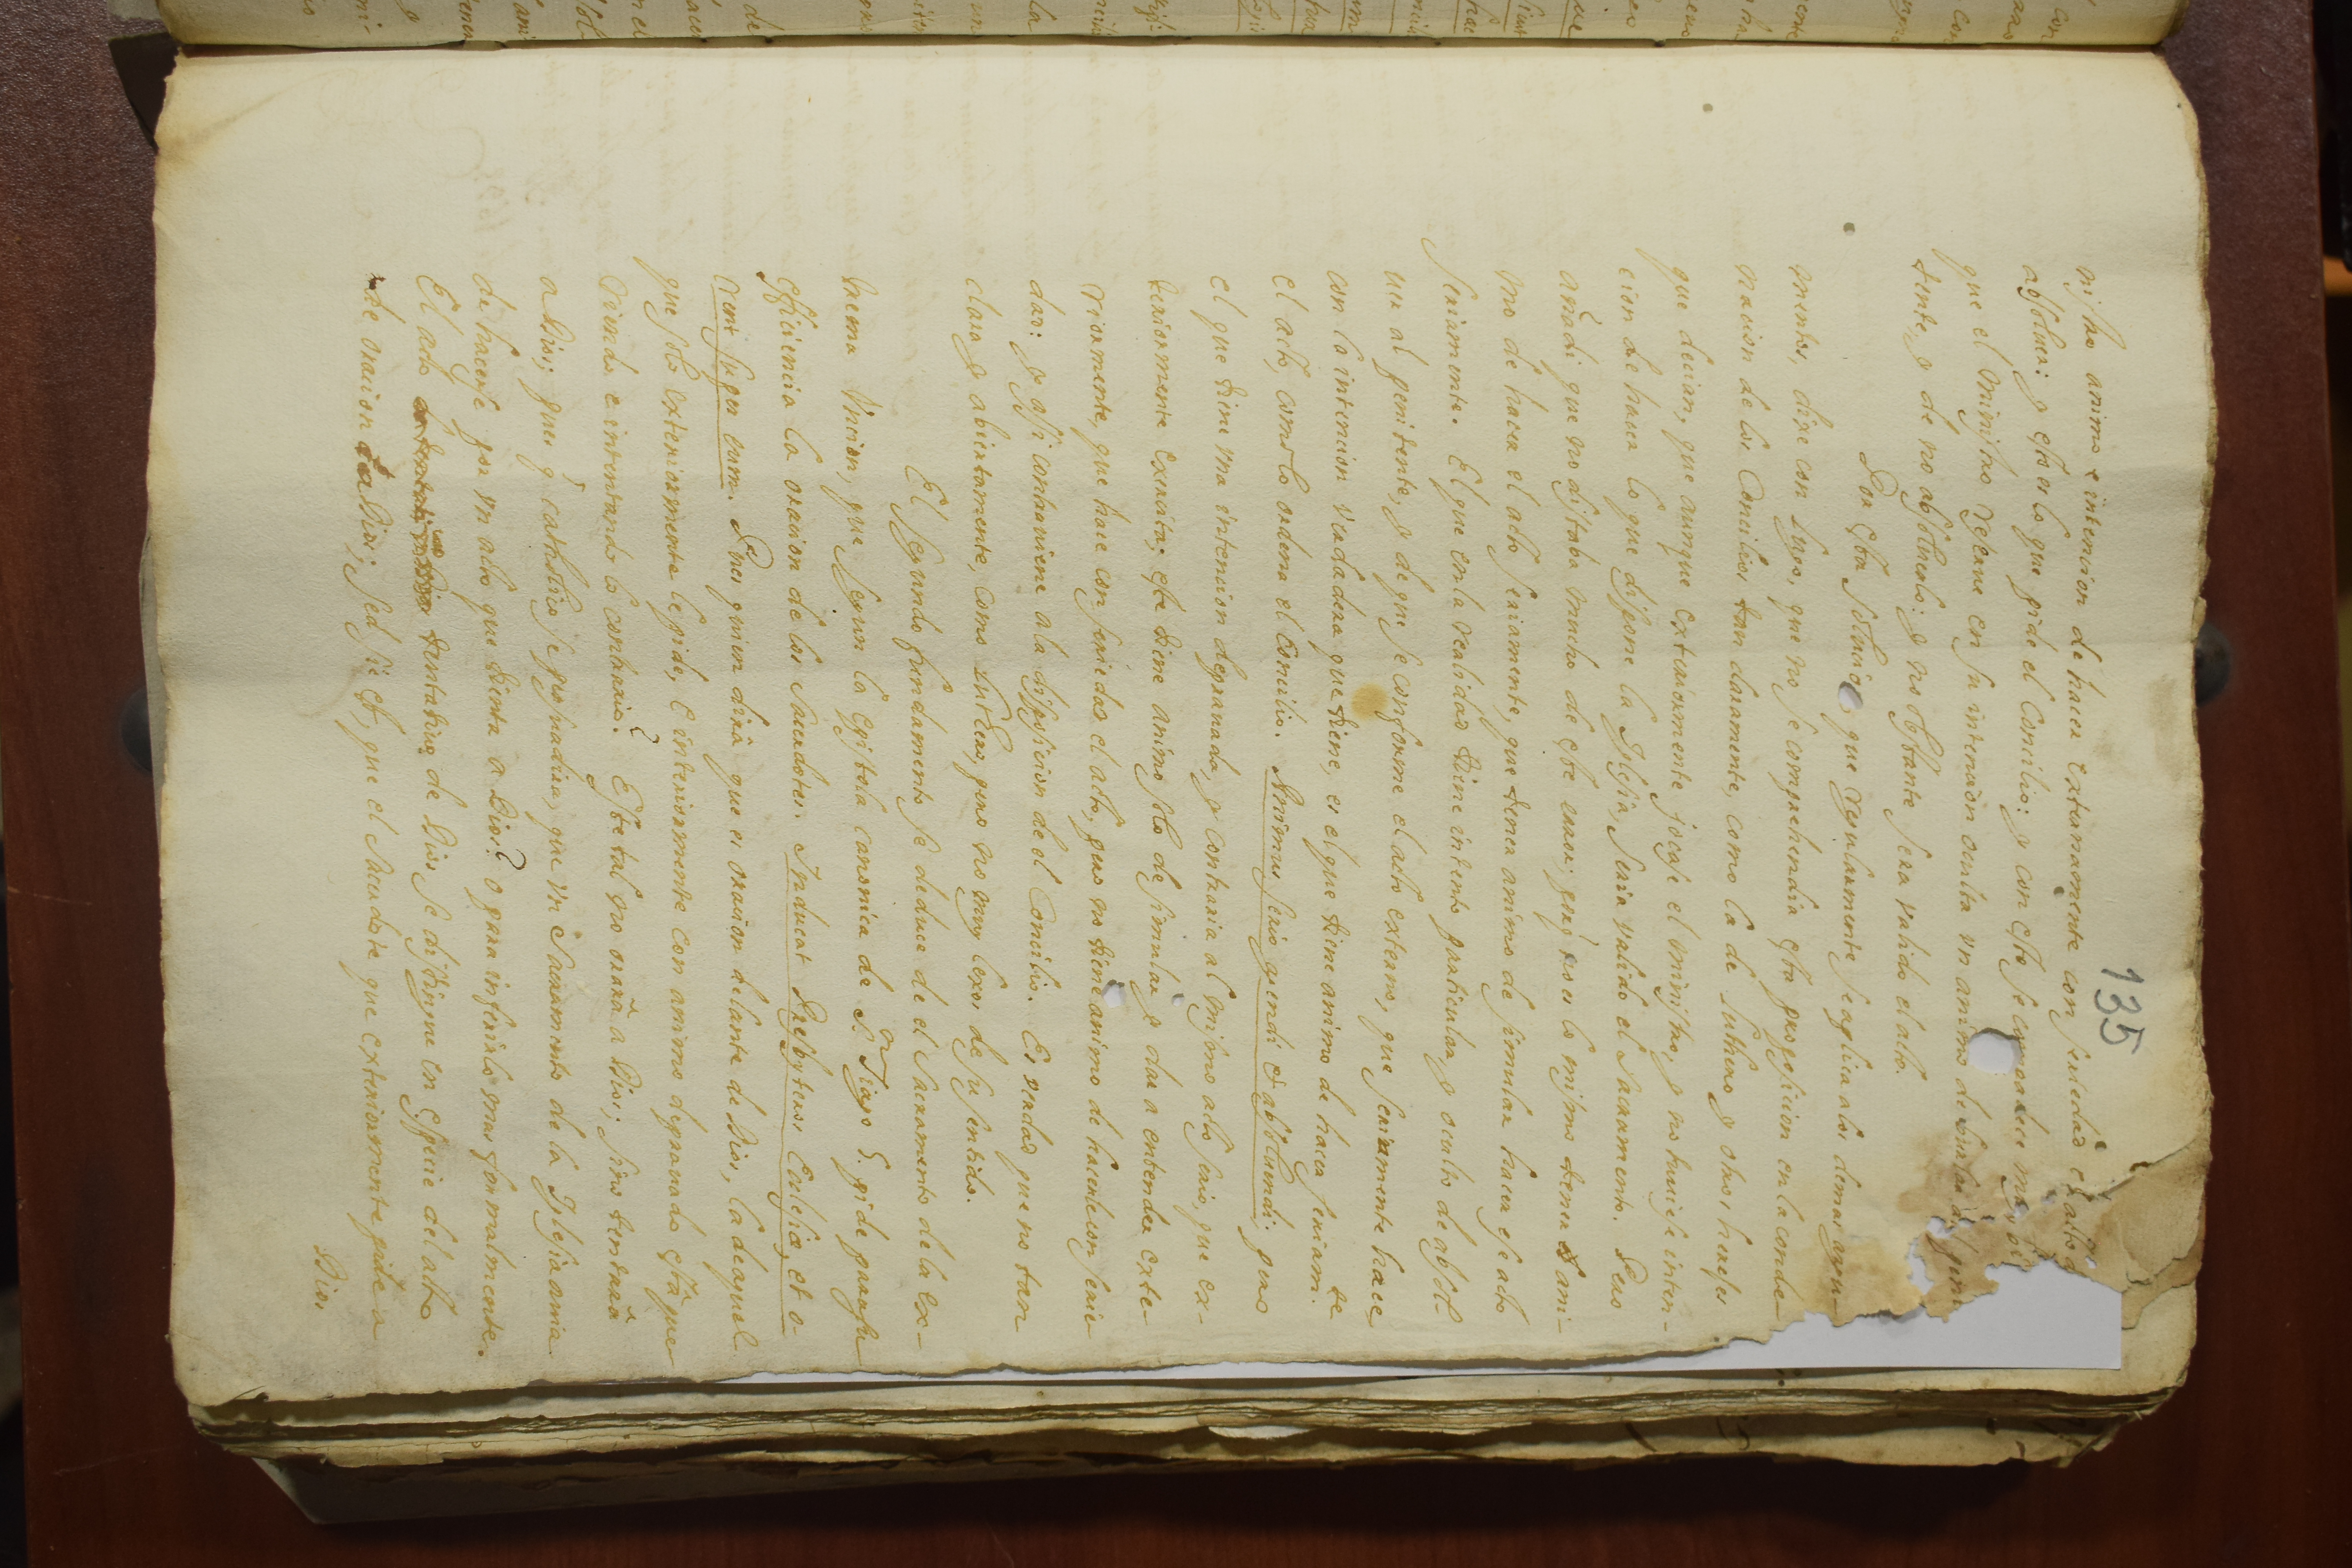 135
nistro animo e intencion de hacer externamente con seriedad el acto d
absolver; y esto es lo que pide el Concilio: y con esto se compadece mui
que el Ministro retrahe en su intencion oculta un animo de
tente, y de no absolverlo: y no obstante sera valido el acto.
Por esta solucio que regularmente se aplica a los demas argu-
mentos, dixe con luyo, que no se comprehendia esta proposicion en la conde-
nacion de los Concilios tan claramente, como la de Luthero y otros hereses
que decian, que aunque exteriormente jocase el ministro, y no tuviese inten-
cion de hacer lo que dispone la Iglesia, seria valido el Sacramento. Pero
añadi que no distaba mucho de este error; porq̃ no es lo mismo tener ani-
mo de hacer el acto seriamente, que tener animo de simular hacer ese acto
seriamente. El que en la realidad tiene intento particular, y oculto de absol-
ver al penitente, y de que se conforme el acto externo, que seriamente hace,
con la intencion verdadera que tiene, es el que tiene animo de hacer seriam.te
el acto, como lo ordena el Concilio. Animus serio agendi & absolvendi; pero
el que tiene una intencion depravada, y contraria al mismo acto serio, que ex-
teriormente exercita; este tiene animo solo de simular y dar a entender exte-
riormente, que hace con seriedad el acto, pero no tiene animo de hacerlo con serie
dad: y assi contraviene a la disposicion de el Concilio. Es verdad que no tan
clara y abiertamente, como Luthero, pero no muy lexos de su sentido.
El segundo fundamento se deduce de el Sacramento de la Ex-
trema Uncion, que segun la Epistola canonica de S.n Tiago S. pide para su
efficiencia la oracion de los Sacerdotes. Inducat Presbyteros Eclesiæ, et o-
rent super eum. Pues quien dirá que es oracion delante de Dios, la de aquel
que solo exteriormente le pide, e interiormente con animo depravado está que-
riendo e intentando lo contrario? Este tal no orará a Dios; sino tentará
a Dios; pues q̃ catholico se persuadira, que un Sacramento de la Iglesia avia
de hacerse por un acto que tienta a Dios? o para inferirlo mas formalmente.
El acto tentativo de Dios se distingue en especie del acto
de oracion a Dios; sed sic est, que el Sacerdote que exteriormente pide a
Dios